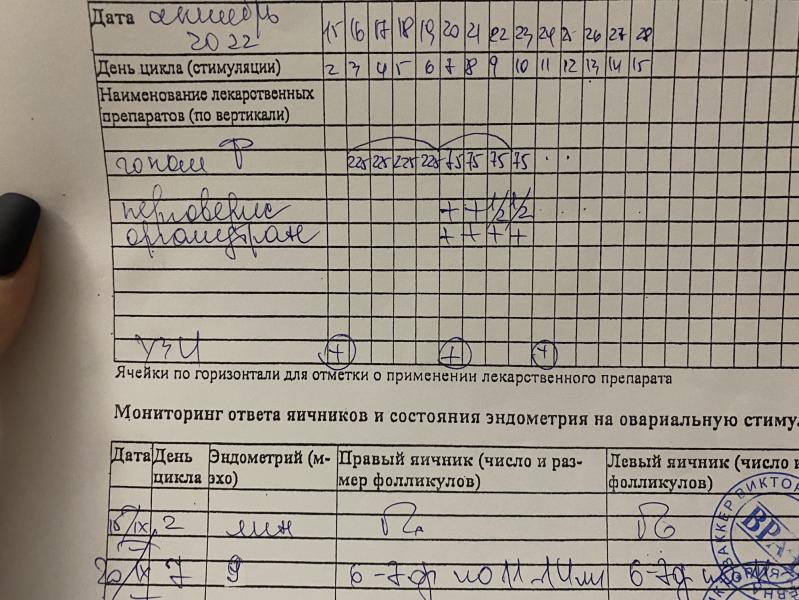 Дата октябрь 15 16 17 18 19 20 21 22 23 24 25 26 27 28
2022
День цикла (стимуляции) 2 3 4 5 6 7 8 9 10 11 12 13 14 15
Наименование лекарственных
препаратов (по вертикали)
225 225 225 225 75 75 75 75
+ + 1/2 1/2
оргалутран + + + +
УЗИ + + +
Ячейки по горизонтали для отметки о применении лекарственного препарата
Мониторинг ответа яичников и состояния эндометрия на овариальную
Дата День цикла Эндометрий (м-эхо) Правый яичник (число и размер фолликулов) Левый яичник (число и фолликулов)
2
20/IX 7 9 6-7 по 11-14 мм 6-7